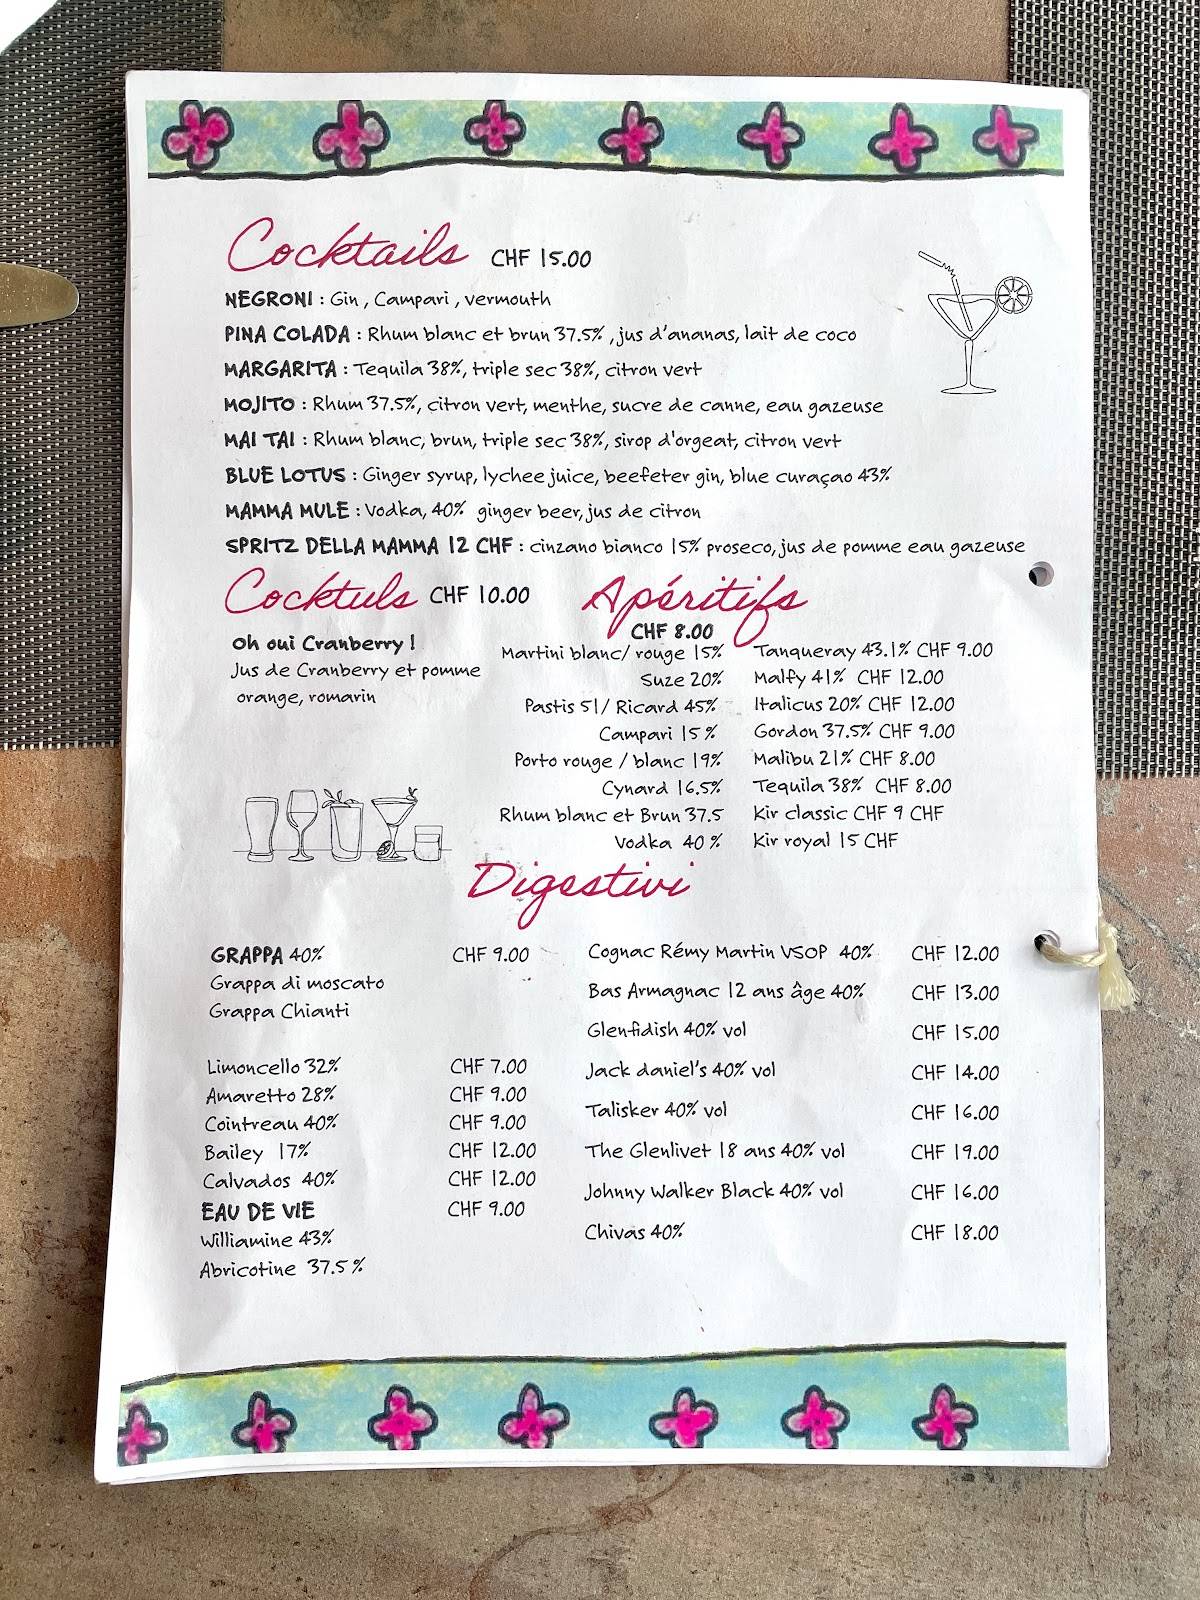 Cocktails CHF 15.00
NEGRONI : Gin , Campari , vermouth
PINA COLADA : Rhum blanc et brun 37.5% , jus d'ananas, lait de coco
MARGARITA : Tequila 38%, triple sec 38%, citron vert
MOJITO : Rhum 37.5%, citron vert, menthe, sucre de canne, eau gazeuse
MAI TAI : Rhum blanc, brun, triple sec 38%, sirop d'orgeat, citron vert
BLUE LOTUS : Ginger syrup, lychee juice, beefeter gin, blue curaçao 43%
MAMMA MULE : Vodka, 40% ginger beer, jus de citron
SPRITZ DELLA MAMMA 12 CHF : cinzano bianco 15% proseco, jus de pomme eau gazeuse
Cocktuls CHF 10.00
Oh oui Cranberry !
Jus de Cranberry et pomme
orange, romarin
Apéritifs
CHF 8.00
Martini blanc/ rouge 15%
Suze 20%
Pastis 51/ Ricard 45%
Campari 15 %
Porto rouge / blanc 19%
Cynard 16.5%
Rhum blanc et Brun 37.5
Vodka 40 %
Tanqueray 43.1% CHF 9.00
Malfy 41% CHF 12.00
Italicus 20% CHF 12.00
Gordon 37.5% CHF 9.00
Malibu 21% CHF 8.00
Tequila 38% CHF 8.00
Kir classic CHF 9 CHF
Kir royal 15 CHF
Digestivi
GRAPPA 40% CHF 9.00
Grappa di moscato
Grappa Chianti
Limoncello 32% CHF 7.00
Amaretto 28% CHF 9.00
Cointreau 40% CHF 9.00
Bailey 17% CHF 12.00
Calvados 40% CHF 12.00
EAU DE VIE CHF 9.00
Williamine 43%
Abricotine 37.5 %
Cognac Rémy Martin VSOP 40% CHF 12.00
Bas Armagnac 12 ans âge 40% CHF 13.00
Glenfidish 40% vol CHF 15.00
Jack daniel's 40% vol CHF 14.00
Talisker 40% vol CHF 16.00
The Glenlivet 18 ans 40% vol CHF 19.00
Johnny Walker Black 40% vol CHF 16.00
Chivas 40% CHF 18.00